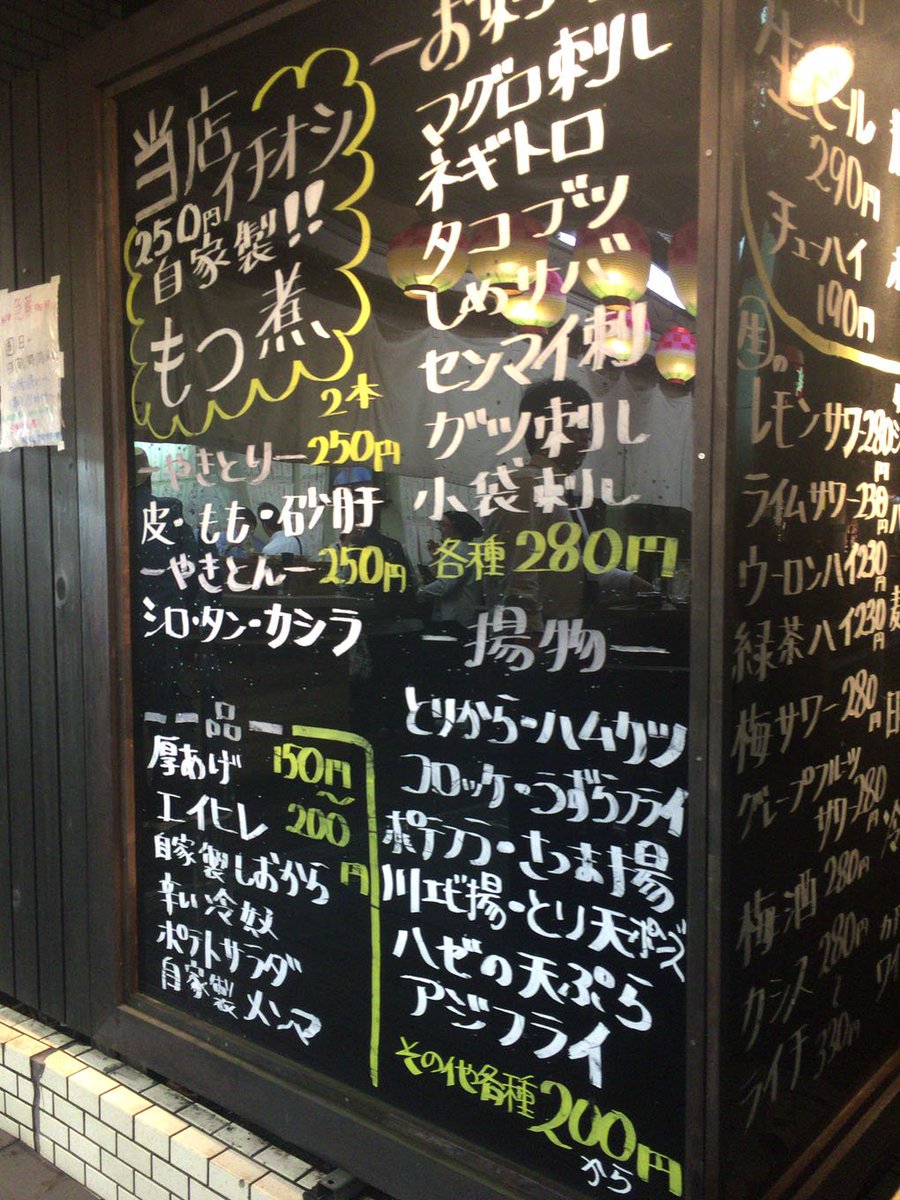 当店
イチオシ
250円
自家製!!
もつ煮
2本
ーやきとりー250円
皮・もも・砂肝
ーやきとんー250円
シロ・タン・カシラ
ー一品ー
厚あげ 150円
〜
エイヒレ 200
円
自家製しおから
辛い冷奴
ポテトサラダ
自家製メンマ
ーお刺
マグロ刺し
ネギトロ
タコブツ
しめサバ
センマイ刺
ガツ刺し
小袋刺し
各種280円
ー揚物ー
とりから・ハムカツ
コロッケ・うずらフライ
ポテフラ・さつま揚
川エビ揚・とり天ポンズ
ハゼの天ぷら
アジフライ
その他各種200円
から
生ビール
290円
チューハイ
190円
生の
レモンサワー280円
ライムサワー230円
ウーロンハイ230円
緑茶ハイ230円
梅サワー280円
グレープフルーツ
サワー280
梅酒280円
カシス280円
〜
ライチ330円